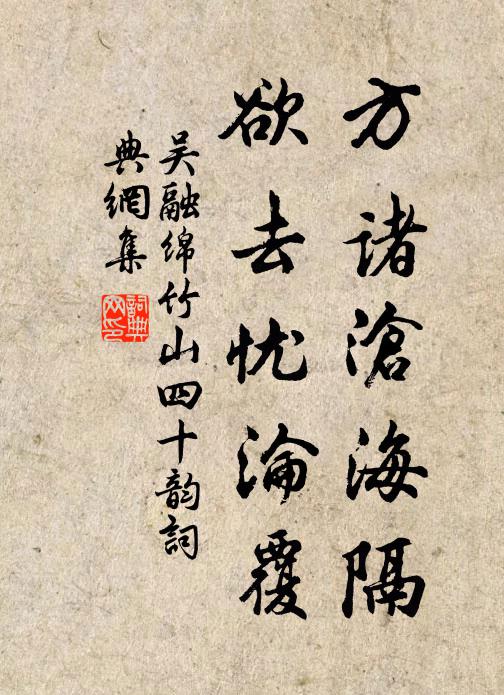 方诸沧海隔
欲去忧沦覆
吴融绵竹山四十韵词
典網集
詞典网印